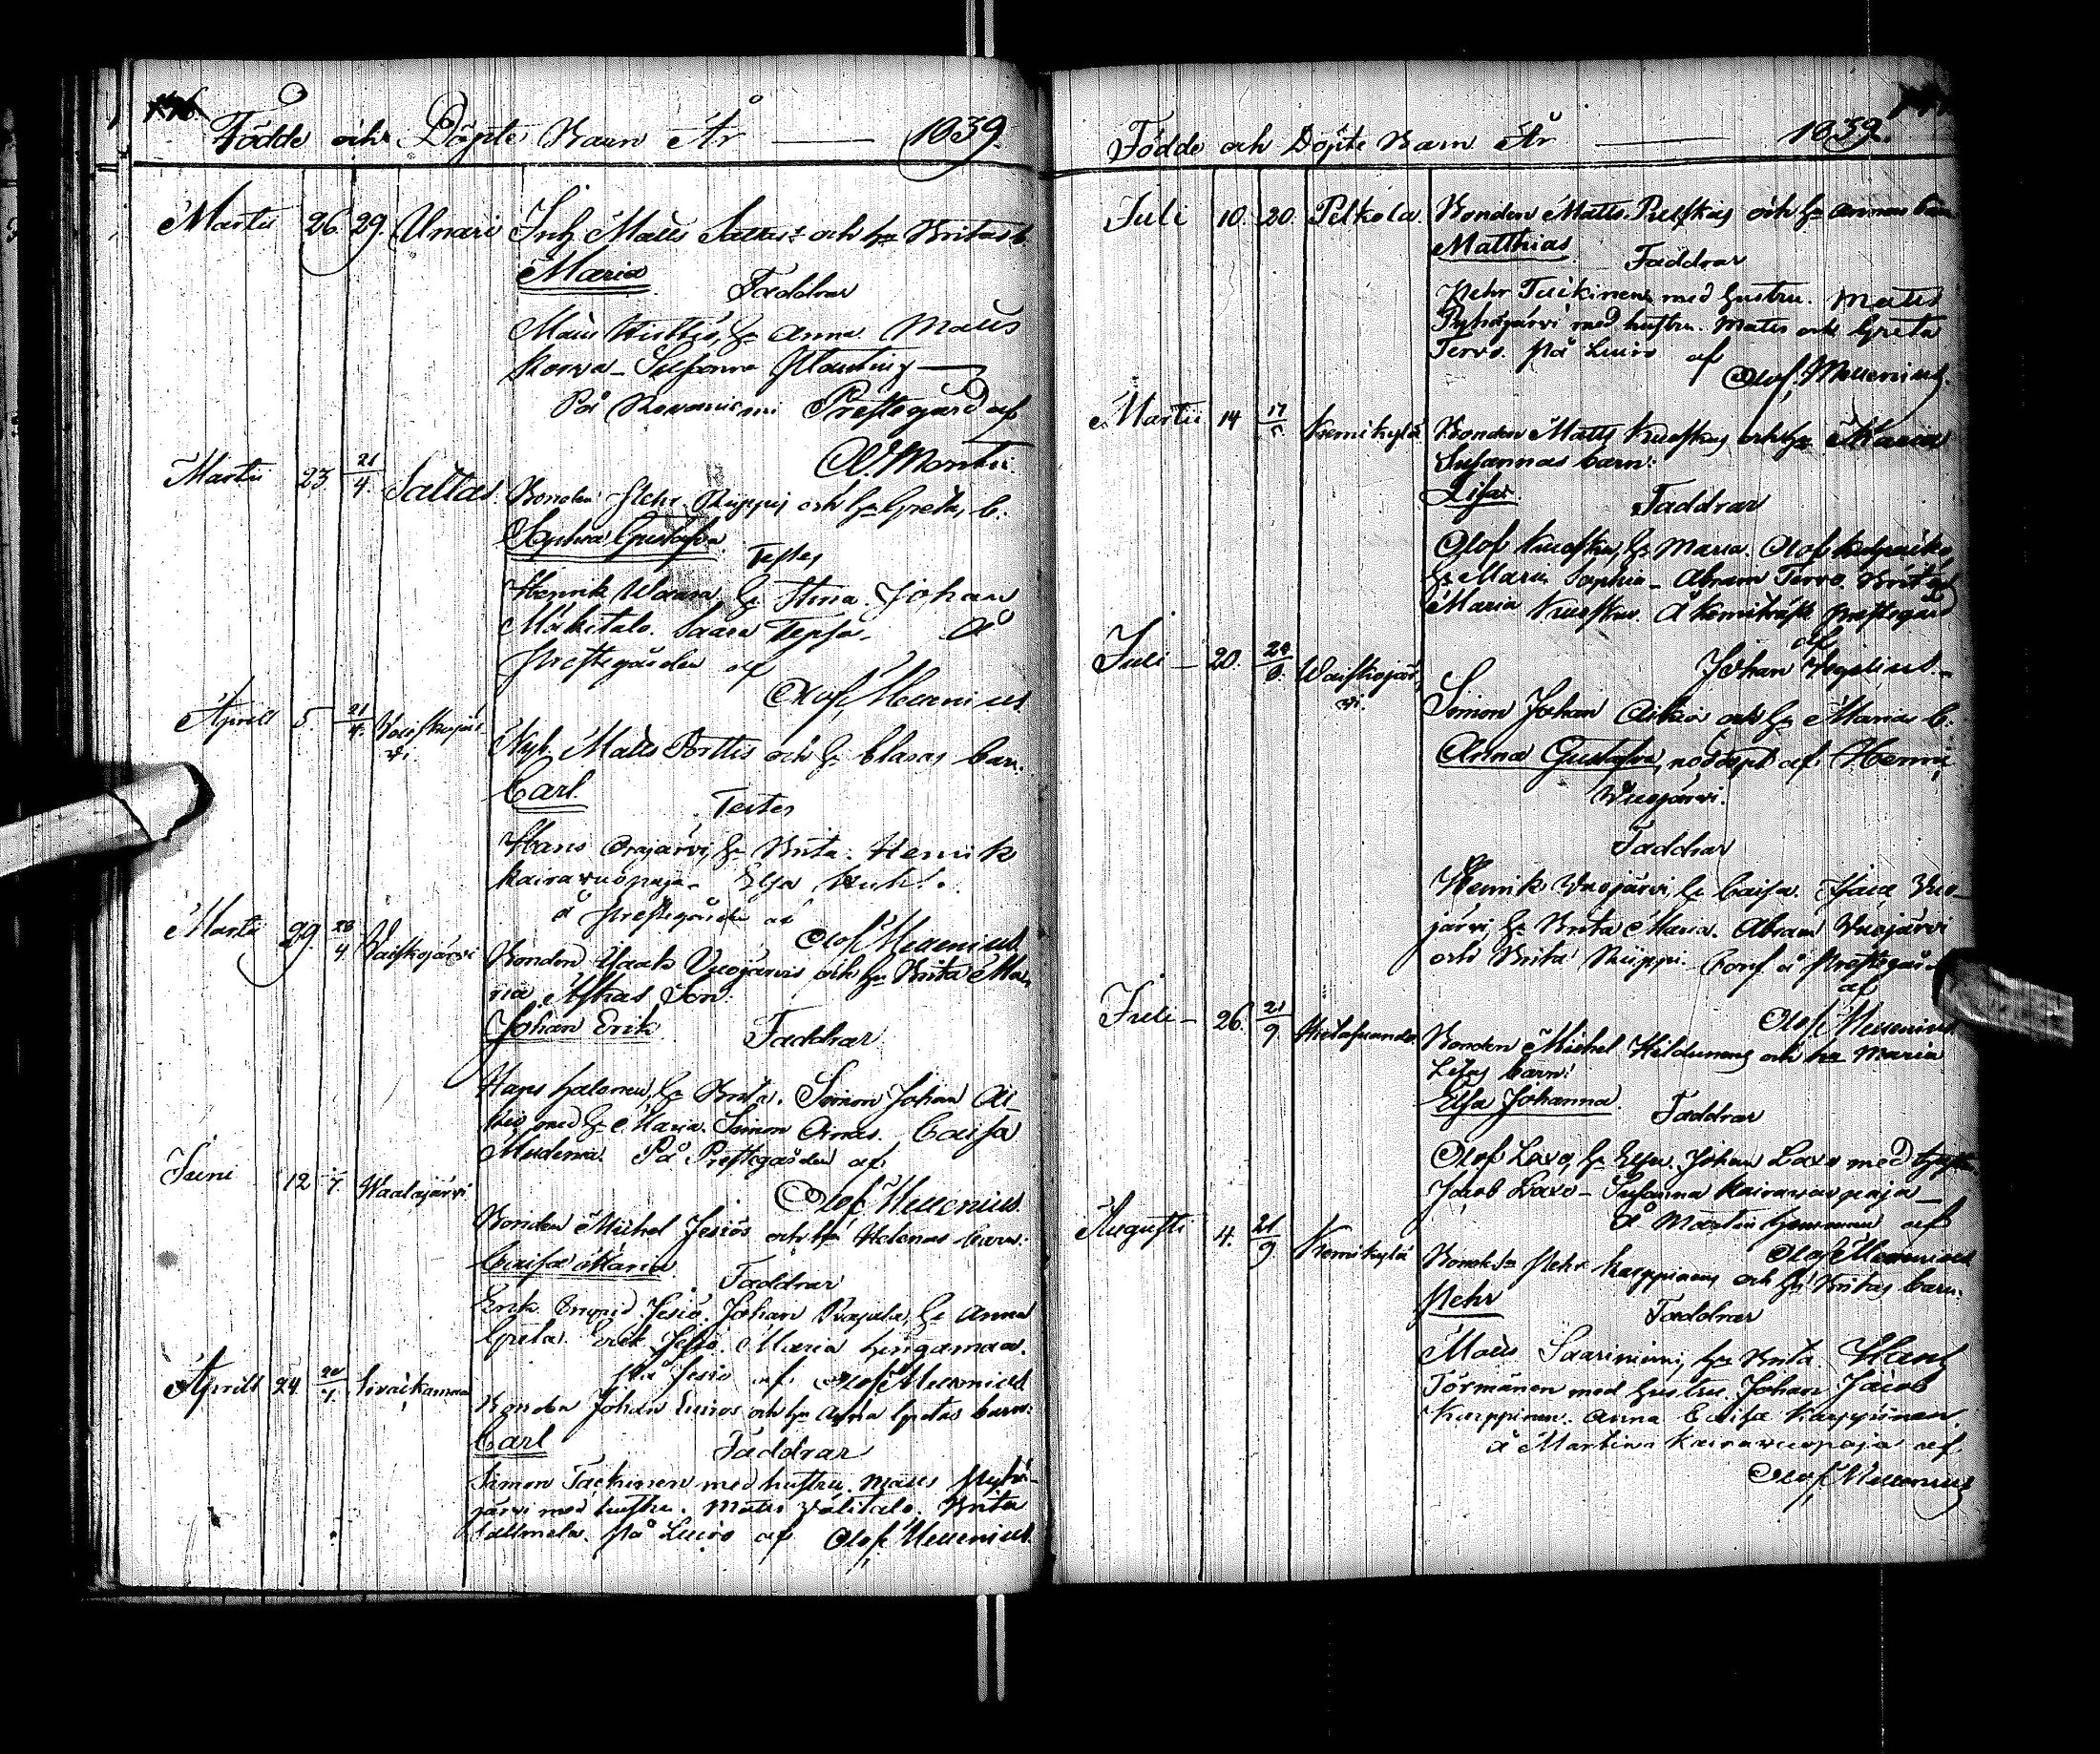 Födde och Döpte Barn År 1839.
Martii 26. 29. Unari Inh. Matts Sattas och h. Britas b.
Maria
Faddrar
h. Anna. Matts
Korva
På Rovaniemi Prestegård af
Martii 23. 21/4. Sattas. Bonden Pehr Riippis och h. Gretas b.
Sophia Gustafva
Testes
Henrik Waara, h. Stina. Johan
Mäkitalo. Saara Tepsa. Å
Prestegården af
Olof Mellenius
Aprill 5. 21/4. Waiskojär
vi.
Nyb. Matts Porttis och h. Clara's barn.
Carl.
Testes
Hans Orajärvi, h. Brita. Henrik
Kairavuopaja. Elsa
å Prestegården af
Olof Mellenius
Martii 29. 4 Vaiskojärvi
Bonden Isaak Vuojärvis och h. Brita Ma-
ria Son.
Johan Erik
Faddrar
Hans Halonen, h. Brita. Simon Johan Ai-
kio med h. Maria. Simon Caisa
På Prestegården af
Olof Mellenius
Juni 12 7. Waalajärvi
Bonden Michel Jesiös och h. Helenas barn:
Caisa Maria
Faddrar
Erik Jesiö. Johan h. Anna
Greta. Erik Jesiö. Maria Hengamaa.
På Jesiö af Olof Mellenius
Aprill 24. 7. Sivaikamaa
Bonden Johan Luiros och h. Anna Gretas barn:
Carl
Faddrar
Simon Tackinen med hustru. Matts Pyhä-
järvi med hustru. Matts Välitalo. Brita
På Luiro af Olof Mellenius
Födde och Döpte Barn År 1839.
Juli 10. 20. Pelkola. Bonden Matts och h. Annas barn
Matthias
Faddrar
Pehr med hustru. Matts
Pyhäjärvi med hustru. Matts och Greta
Tervo. På Luiro af
Olof Mellenius.
Martii 14 17 Kemikylä Bonden Matts Kuoskus och h. Maria
Susannas barn:
Lisa.
Faddrar
Olof Kuosku, h. Maria. Olof
h. Maria Sophia. Abram Tervo. Brita
Maria Kuosku. Å Kemiträsk Prestegård
af
Johan
Juli 20. Waiskojär
vi.
Simon Johan Aikio och h. Marias b.
Anna Gustafva, nöddöpt af Henric
Vuojärvi.
Faddrar
Henrik Vuojärvi, h. Caisa. Isac Vuo-
järvi, h. Brita Maria. Abram Vuojärvi
och Brita Riippi. Conf. å Prestegården
af
Olof Mellenius
Juli 26. 21/9.
Bonden Michel Hildunens och h. Maria
Lisas barn:
Elsa Johanna.
Faddrar
Olof Laxo, h. Elsa. Johan Laxo med hustru
Jacob Laxo. Susanna Kairavuopaja
å Martin af
Olof Mellenius
Augusti 4. 21/9 Kemikylä
Pehr Karppinens och h. Britas barn:
Pehr
Faddrar
Matts Saariniemi, h. Brita. Hans
Törmänen med hustru. Johan Jacob
Karppinen. Anna Caisa Karppinen.
å Martin Kairavuopaja af
Olof Mellenius